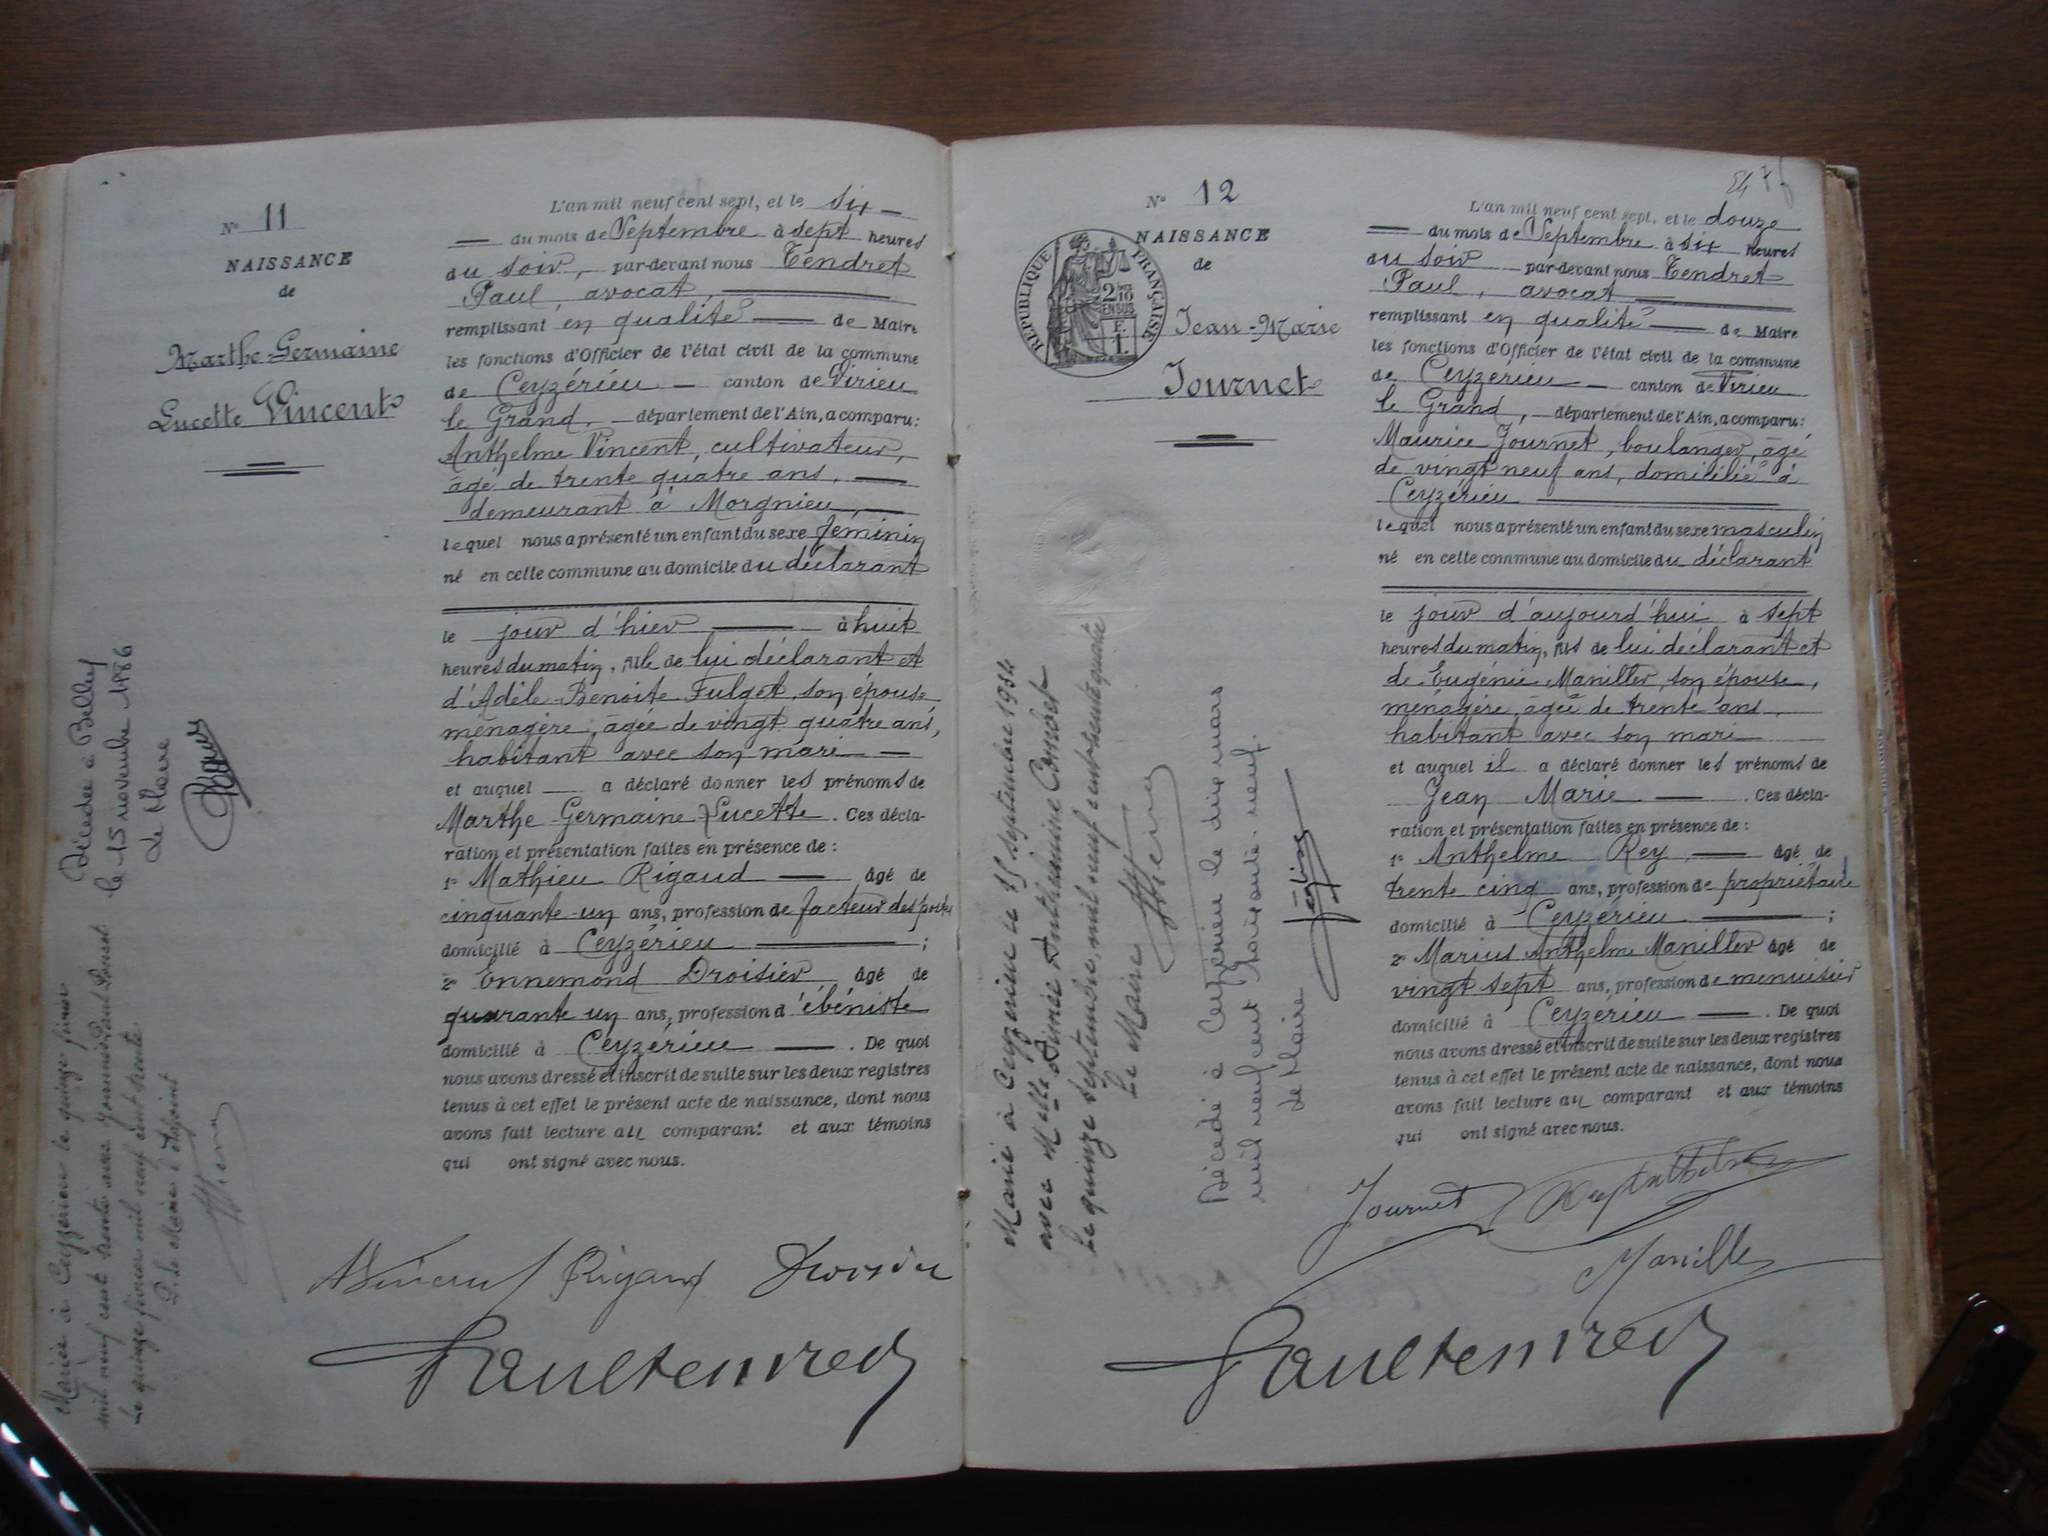 N° 11
NAISSANCE
de
Marthe-Germaine
Lucette Vincent
L'an mil neuf cent sept, et le six
du mois de Septembre à sept heures
du soir, par-devant nous Tendret
Paul, avocat
remplissant en qualité de Maire
les fonctions d'Officier de l'état civil de la commune
de Ceyzérieu canton de Virieu
le Grand, département de l'Ain, a comparu:
Anthelme Vincent, cultivateur,
âgé de trente quatre ans,
demeurant à Morgnieu,
lequel nous a présenté un enfant du sexe féminin
né en cette commune au domicile du déclarant
le jour d'hier à huit
heures du matin, fille de lui déclarant et
d'Adèle-Benoite Fulget, son épouse,
ménagère, âgée de vingt quatre ans,
habitant avec son mari
et auquel a déclaré donner les prénoms de
Marthe-Germaine-Lucette. Ces décla-
ration et présentation faites en présence de :
1° Mathieu Rigaud âgé de
cinquante-un ans, profession de facteur des postes
domicilié à Ceyzérieu ;
2° Ennemond Droisier âgé de
quarante un ans, profession d'ébéniste
domicilié à Ceyzérieu . De quoi
nous avons dressé et inscrit de suite sur les deux registres
tenus à cet effet le présent acte de naissance, dont nous
avons fait lecture au comparant et aux témoins
qui ont signé avec nous.
AVincent Rigaud Droisier
Paul Tendret
Décédée à Belley
le 15 novembre 1986
Le Maire
Mariée à Ceyzérieu le quinze février
mil neuf cent trente avec Paul
Le quinze février mil neuf cent trente
P. le Maire l'Adjoint
N° 12
NAISSANCE
de
Jean-Marie
Journet
RÉPUBLIQUE FRANÇAISE
2/10
EN SUS
F.
1.
54
L'an mil neuf cent sept, et le douze
du mois de Septembre à six heures
du soir par-devant nous Tendret
Paul, avocat
remplissant en qualité de Maire
les fonctions d'Officier de l'état civil de la commune
de Ceyzérieu canton de Virieu
le Grand, département de l'Ain, a comparu:
Maurice Journet, boulanger, âgé
de vingt neuf ans, domicilié à
Ceyzérieu
lequel nous a présenté un enfant du sexe masculin
né en cette commune au domicile du déclarant
le jour d'aujourd'hui à sept
heures du matin, fils de lui déclarant et
de Eugénie Manillier, son épouse,
ménagère, âgée de trente ans,
habitant avec son mari
et auquel il a déclaré donner les prénoms de
Jean Marie . Ces décla-
ration et présentation faites en présence de :
1° Anthelme Rey, âgé de
trente cinq ans, profession de propriétaire
domicilié à Ceyzérieu ;
2° Marius Anthelme Manillier âgé de
vingt sept ans, profession de menuisier
domicilié à Ceyzérieu . De quoi
nous avons dressé et inscrit de suite sur les deux registres
tenus à cet effet le présent acte de naissance, dont nous
avons fait lecture au comparant et aux témoins
qui ont signé avec nous.
Journet Rey Anthelme
Manillier
Paul Tendret
Marié à Ceyzérieu le 15 septembre 1934
avec Melle Aimée Anthelmine Combet
Le quinze septembre mil neuf cent trente quatre
Le Maire
Décédé à Ceyzérieu le dix mars
mil neuf cent soixante-neuf.
Le Maire